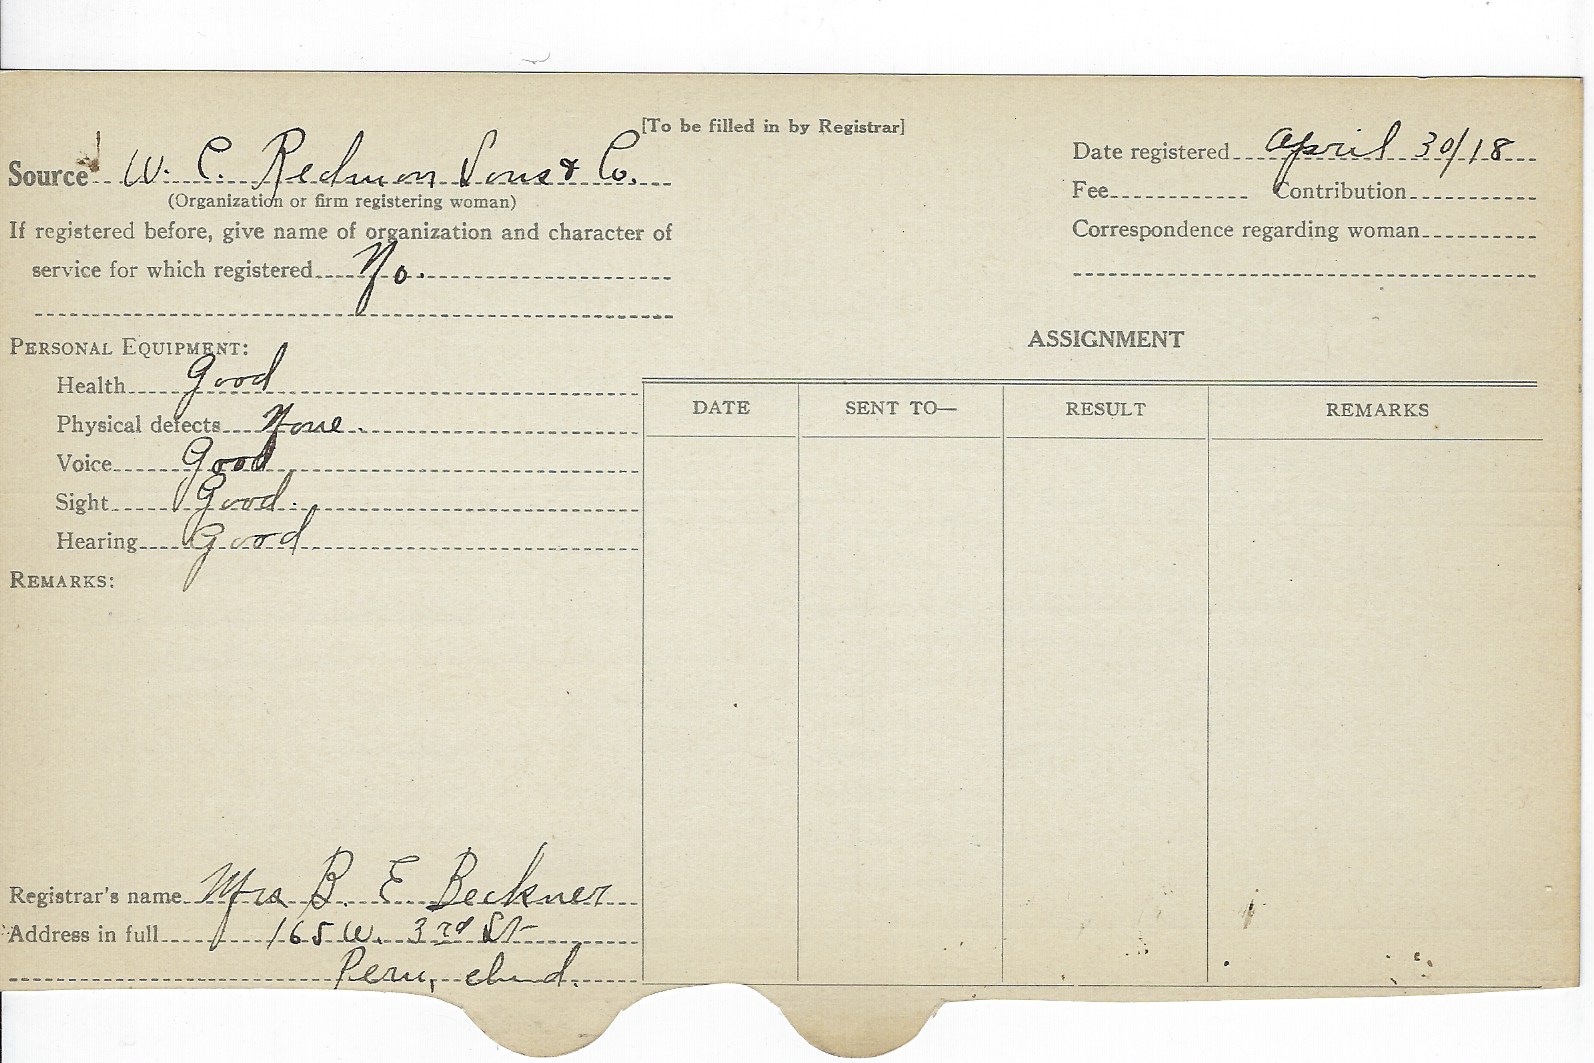 [To be filled in by Registrar]
Source W. C. Redmon Sons & Co.
(Organization or firm registering woman)
If registered before, give name of organization and character of
service for which registered No.
Date registered April 30/18
Fee Contribution
Correspondence regarding woman
PERSONAL EQUIPMENT:
Health Good
Physical defects None.
Voice Good
Sight Good.
Hearing Good
REMARKS:
ASSIGNMENT
DATE SENT TO— RESULT REMARKS
Registrar's name Mrs B. E Beckner
Address in full 165 W. 3rd St
Peru, Ind.